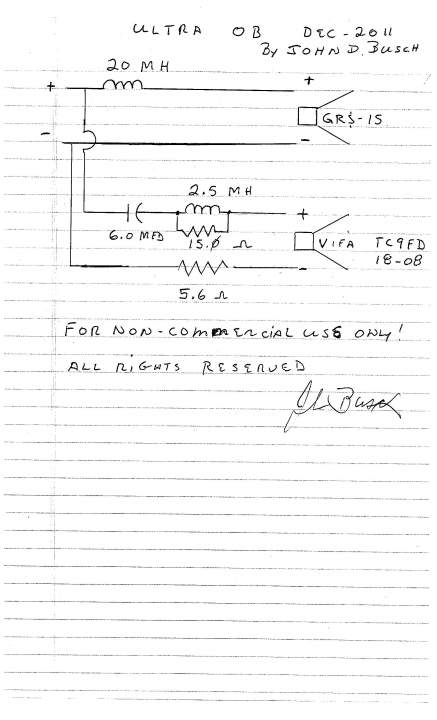 ULTRA OB DEC-2011
By JOHN D. BUSCH
20 MH
+ +
GRS-15
- -
2.5 MH
+
6.0 MFD 15.0 Ω
VIFA TC9FD
18-08
-
5.6 Ω
FOR NON-COMMERCIAL USE ONLY!
ALL RIGHTS RESERVED
John Busch